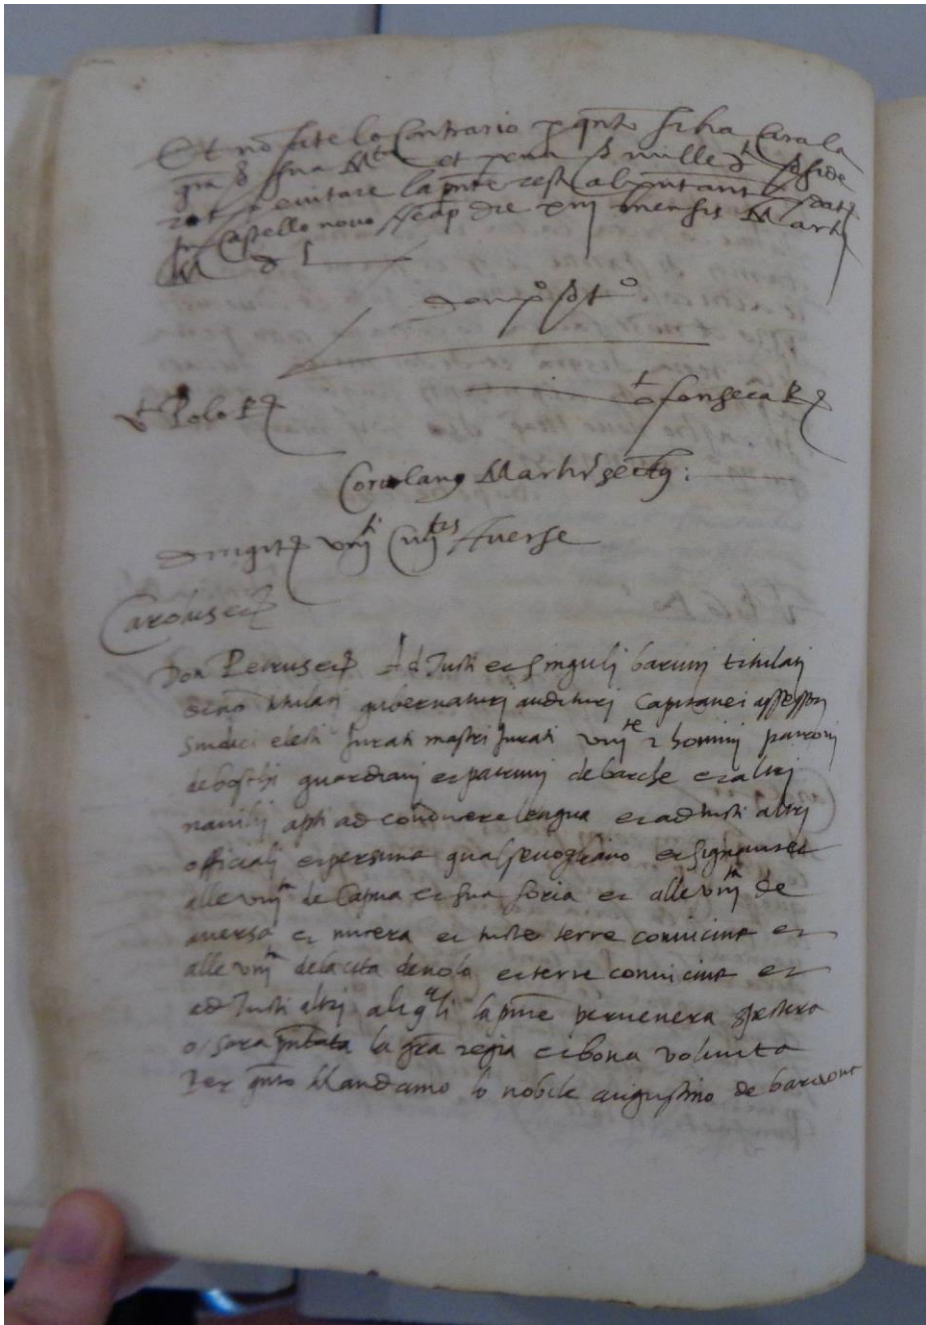 Et nō fate lo Contrario p qnto si ha Cara la
gra de sua Mta et pena de mille dt
evitare la pnte resti al pntant
In Castello novo Neap die xiij mensis Martij
M d l
don po de to
Vt Polo Rs
Vt fonseca Rs
Coriolanus Martir secrs:
dirigitr unitti Civittis Averse
Carolus etc
Don Petrus etc Ad Tutti et singuli baruni titulati
et nō titulati gubernaturi audituri Capitanei assessori
sindici eletti Jurati mastri Jurati unite et homini patroni
de boschi guardiani et patruni de barche et altri
navilij apti ad conducere legna et ad tutti altri
officiali et persune qualsevogliano et signanter
alle unita de Capua et sua foria et alle unita de
aversa et nucera et tutte terre convicine et
alle unita dela cita de nola et terre convicine et
ad Tutti altri ali quali la pnte pervenera
o sara pntata la gra regia et bona volunta
Per qnto Mandamo lo nobile augustino de